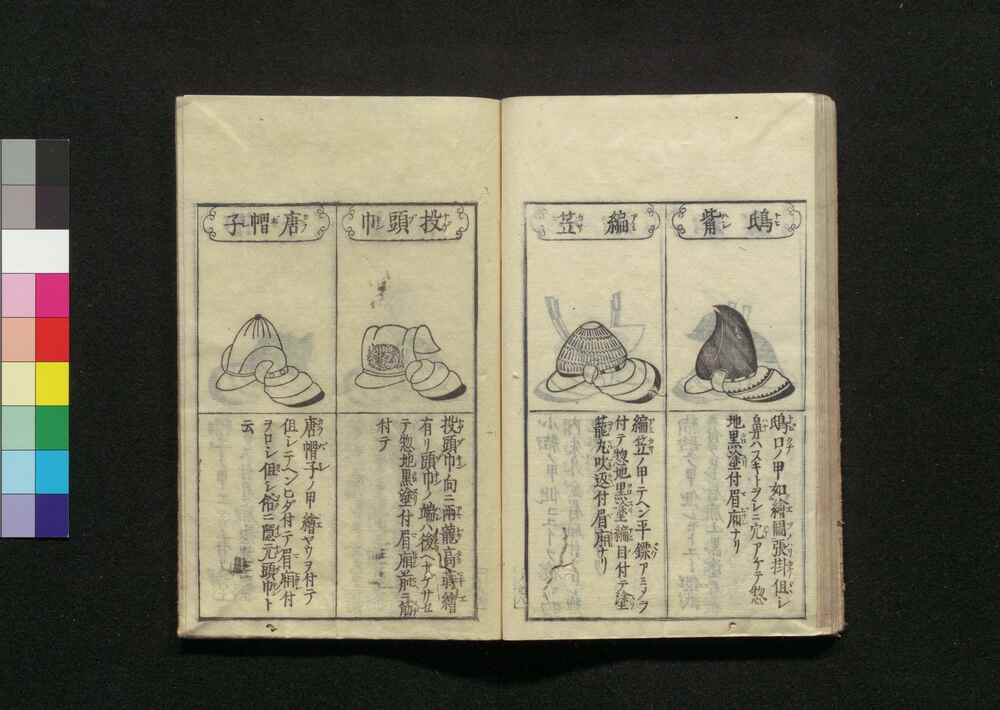 鴟觜
鴟口ノ甲如繪圖張掛但シ
鼻ハスキトヲシニ穴アケテ惣
地黒塗付眉廂ナリ
編笠
編笠ノ甲テヘン平鏢アミメヲ
付テ惣地黒塗編目付テ塗
蘢丸吹返付眉廂ナリ
投頭巾
投頭巾向ニ兩龍高蒔繪
有リ頭巾ノ端ハ後ヘサゲサセ
テ惣地黒塗付眉廂前ニ筋
付テ
唐帽子
唐帽子ノ甲繪ヤウヲ付テ
但シテヘンヒダ付テ眉廂付
ヲロシ但シ俗ニ隠元頭巾ト
云